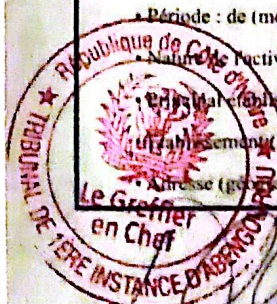 • Période : de (mo
• Nature
activ
• Principal établis
établissement (
• Adresse (géog
République de Côte d'Ivoire
TRIBUNAL DE 1ERE INSTANCE D'ABENGOUROU
Le Greffier
en Chef